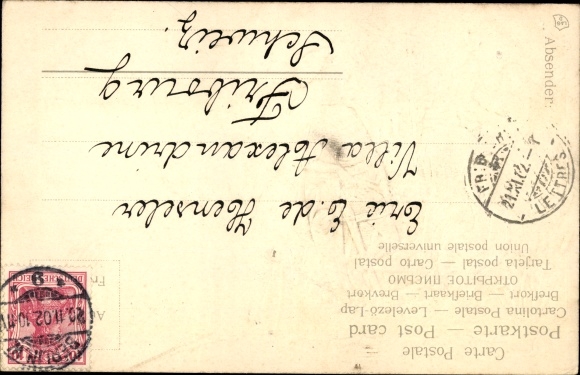 Carte Postale
Postkarte — Post card
Cartolina Postale — Levelező-Lap
Brefkort — Briefkaart — Brevkort
ОТКРЫТОЕ ПИСЬМО
Tarjeta postal — Carto postal
Union postale universelle
Eric E. de Henseler
Villa Alexandrine
Fribourg
Schweiz.
Absender:
LETTRES
DEUTSCHES REICH